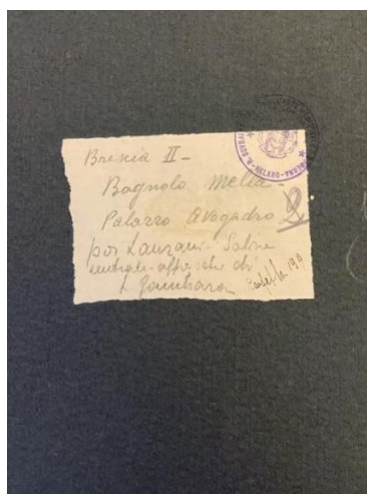 Brescia II -
Bagnolo Mella -
Palazzo Avogadro
poi Lanzani - Salone
centrale - affreschi di
L. Gambara
MILANO